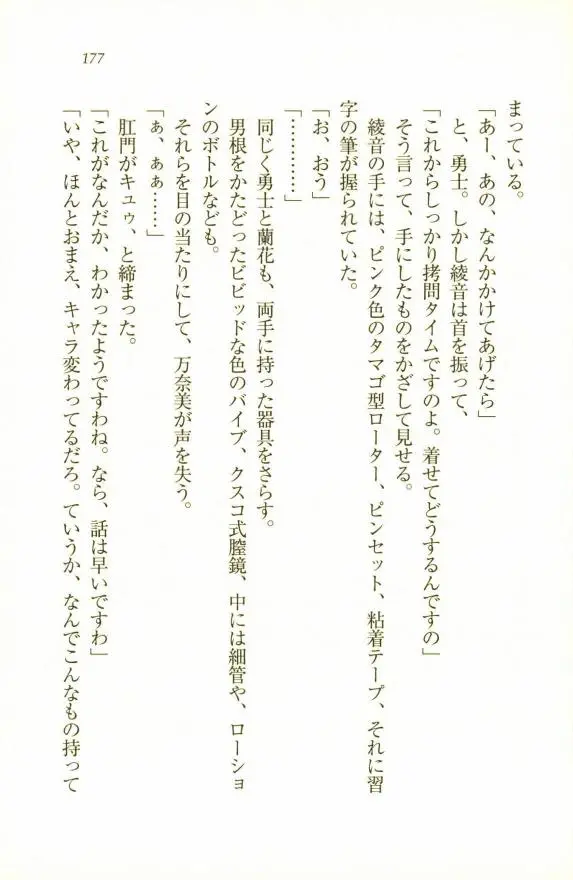 177
まっている。
「あー、あの、なんかかけてあげたら」
と、勇士。しかし綾音は首を振って、
「これからしっかり拷問タイムですのよ。着せてどうするんですの」
そう言って、手にしたものをかざして見せる。
綾音の手には、ピンク色のタマゴ型ローター、ピンセット、粘着テープ、それに習
字の筆が握られていた。
「お、おう」
「…………」
同じく勇士と蘭花も、両手に持った器具をさらす。
男根をかたどったビビッドな色のバイブ、クスコ式膣鏡、中には細管や、ローショ
ンのボトルなども。
それらを目の当たりにして、万奈美が声を失う。
「ぁ、ぁぁ……」
肛門がキュゥ、と締まった。
「これがなんだか、わかったようですわね。なら、話は早いですわ」
「いや、ほんとおまえ、キャラ変わってるだろ。ていうか、なんでこんなもの持って